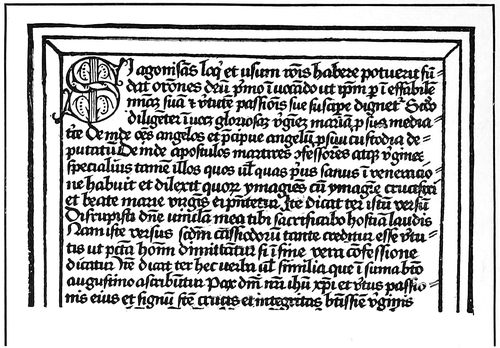 Si agonisãs loq̃ et usum rõis habere potuerit fũ⸗
dat orõnes deũ p̃mo ĩuocando ut ip̃m p ĩ effabile
micaȝ suã ⁊ ṽtutẽ passiõis sue suscipe dignet̃ Scðo
diligẽter ĩuoceȝ gloriosaȝ ṽginẽ mariaȝ p sua media
tiõe Deĩnde oẽs angelos et p̃cipue angelũ p suũ custodia de⸗
putatũ Deĩnde apostolos martires ↄfessores atq̃ ṽgines⸗
specialius tamẽ illos quos vl̃ quas p̃us sanus ĩ veneratio⸗
ne habuit et dilexit quoꝝ ymagiẽs cũ ymagĩe crucifixi
et beate marie virgĩs ei p̃ntẽtur Itẽ dicat ter istũ versũ
Dirupisti dñe vincula mea tibi sacrificabo hostiã laudis
Nam iste versus scðm cassiodorum tante creditur esse ṽtu⸗
tis ut pctã hoĩm dimittãtur si ĩ fine vera cõfessione
dicatur Itẽ dicat ter hec verba vl̃ similia que ĩ suma btõ
augustino ascribũtur Pax dñi nr̃i ihũ xp̃i et ṽtus passio⸗
nis eius et signũ scẽ crucis et integritas btĩssiẽ ṽginis